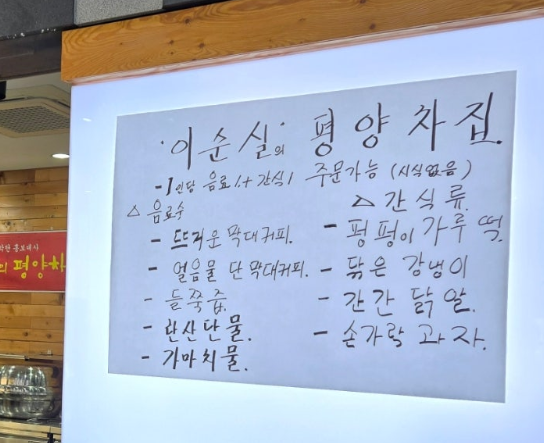 '이순실'의 평양 차집
-1인당 음료1+간식1 주문가능 (시식없음)
△ 음료수
- 뜨더운 막대커피.
- 얼음물 단 막대커피.
- 들쭉즙.
- 한산단물.
- 가마치물.
△ 간식류.
- 펑펑이 가루 떡.
- 닦은 강냉이
- 간간 닭알.
- 손가락 과자.
평양차